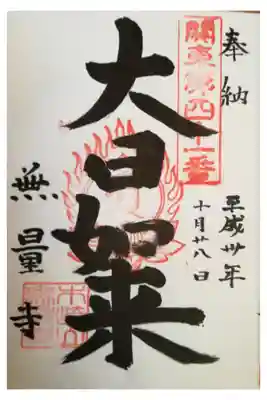 奉納
平成卅年
十月廿八日
關東第四十一番
大日如来
無量寺